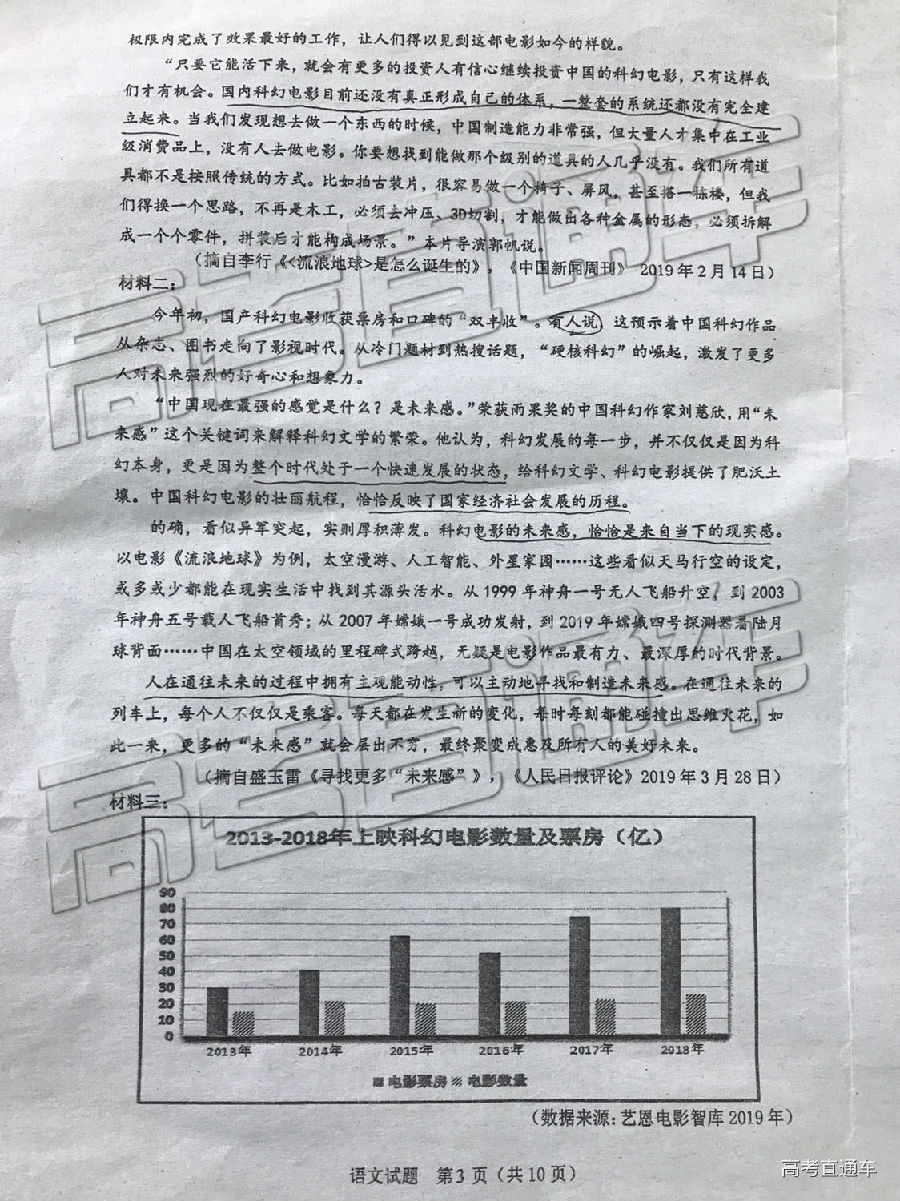 极限内完成了效果最好的工作，让人们得以见到这部电影如今的样貌。
“只要它能活下来，就会有更多的投资人有信心继续投资中国的科幻电影，只有这样我
们才有机会。国内科幻电影目前还没有真正形成自己的体系，一整套的系统还都没有完全建
立起来。当我们发现想去做一个东西的时候，中国制造能力非常强，但大量人才集中在工业
级消费品上，没有人去做电影。你要想找到能做那个级别的道具的人几乎没有。我们所有道
具都不是按照传统的方式。比如拍古装片，很容易做一个椅子、屏风，甚至搭一栋楼，但我
们得换一个思路，不再是木工，必须去冲压、3D切割，才能做出各种金属的形态，必须拆解
成一个个零件，拼装后才能构成场景。”本片导演郭帆说。
（摘自李行《<流浪地球>是怎么诞生的》，《中国新闻周刊》 2019年2月14日）
材料二：
今年初，国产科幻电影收获票房和口碑的“双丰收”。有人说，这预示着中国科幻作品
从杂志、图书走向了影视时代。从冷门题材到热搜话题，“硬核科幻”的崛起，激发了更多
人对未来强烈的好奇心和想象力。
“中国现在最强的感觉是什么？是未来感。”荣获雨果奖的中国科幻作家刘慈欣，用“未
来感”这个关键词来解释科幻文学的繁荣。他认为，科幻发展的每一步，并不仅仅是因为科
幻本身，更是因为整个时代处于一个快速发展的状态，给科幻文学、科幻电影提供了肥沃土
壤。中国科幻电影的壮丽航程，恰恰反映了国家经济社会发展的历程。
的确，看似异军突起，实则厚积薄发。科幻电影的未来感，恰恰是来自当下的现实感。
以电影《流浪地球》为例，太空漫游、人工智能、外星家园……这些看似天马行空的设定，
或多或少都能在现实生活中找到其源头活水。从1999年神舟一号无人飞船升空，到2003
年神舟五号载人飞船首秀；从2007年嫦娥一号成功发射，到2019年嫦娥四号探测器着陆月
球背面……中国在太空领域的里程碑式跨越，无疑是电影作品最有力、最深厚的时代背景。
人在通往未来的过程中拥有主观能动性，可以主动地寻找和制造未来感。在通往未来的
列车上，每个人不仅仅是乘客。每天都在发生新的变化，每时每刻都能碰撞出思维火花，如
此一来，更多的“未来感”就会层出不穷，最终聚变成惠及所有人的美好未来。
（摘自盛玉雷《寻找更多“未来感”》，《人民日报评论》2019年3月28日）
材料三：
2013-2018年上映科幻电影数量及票房（亿）
90
80
70
60
50
40
30
20
10
0
2013年 2014年 2015年 2016年 2017年 2018年
电影票房 电影数量
（数据来源：艺恩电影智库2019年）
语文试题 第3页（共10页）
高考直通车
高考直通车
高考直通车